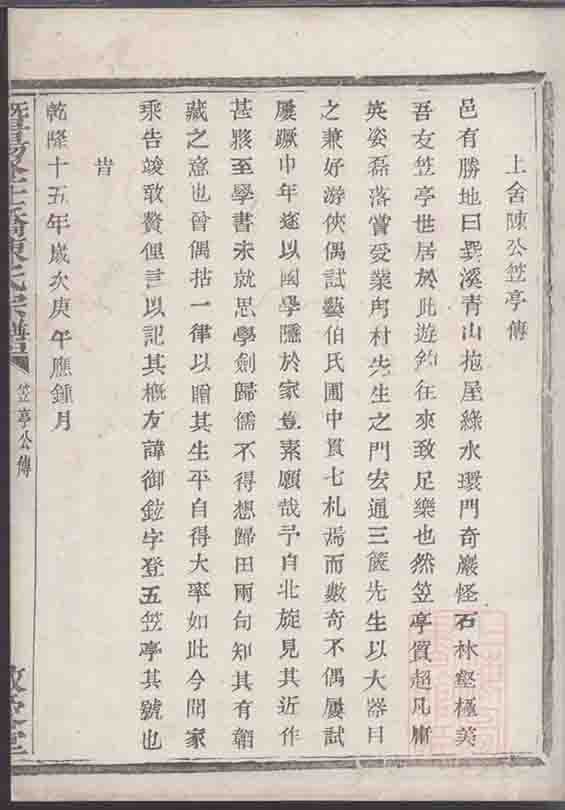 上舍陳公笠亭傳
邑有勝地曰巽溪青山抱屋綠水環門奇巖怪石林壑極美
吾友笠亭世居於此遊釣往來致足樂也然笠亭質超凡庸
英姿磊落嘗受業冉村先生之門宏通三篋先生以大器目
之兼好游俠偶試藝伯氏圃中貫七札焉而數奇不偶屢試
屢蹶中年遂以國學隱於家豈素願哉予自北旋見其近作
甚夥至學書未就思學劍歸儒不得想歸田兩句知其有韜
藏之意也曾偶拈一律以贈其生平自得大率如此今閱家
乘告竣敢贅俚言以記其概友諱御鎧字登五笠亭其號也
旹
乾隆十五年歲次庚午應鍾月
陳氏宗譜
笠亭公傳